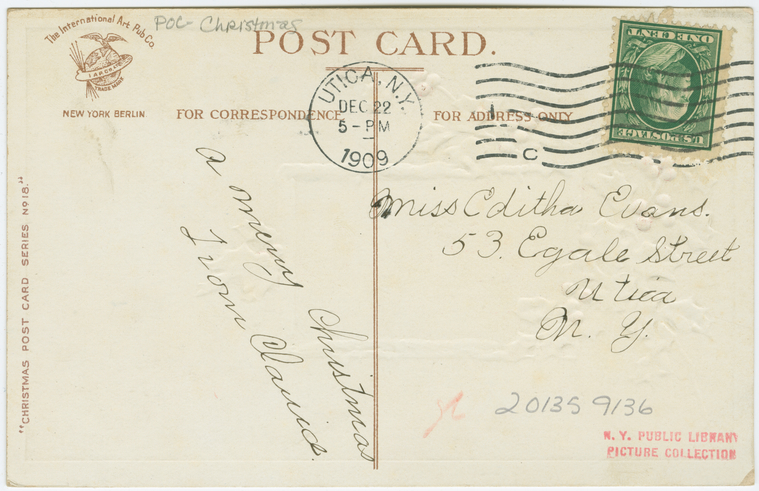 POC- Christmas
The International Art Pub Co.
TRADE MARK
NEW YORK BERLIN
POST CARD.
FOR CORRESPONDENCE
FOR ADDRESS ONLY
UTICA, N.Y.
DEC 22
5-PM
1909
C
U.S. POSTAGE
ONE CENT
a merry Christmas
from David.
Miss Editha Evans.
53. Egale Street
Utica
N. Y.
"CHRISTMAS POST CARD SERIES No 18."
2013S 9136
N. Y. PUBLIC LIBRARY
PICTURE COLLECTION